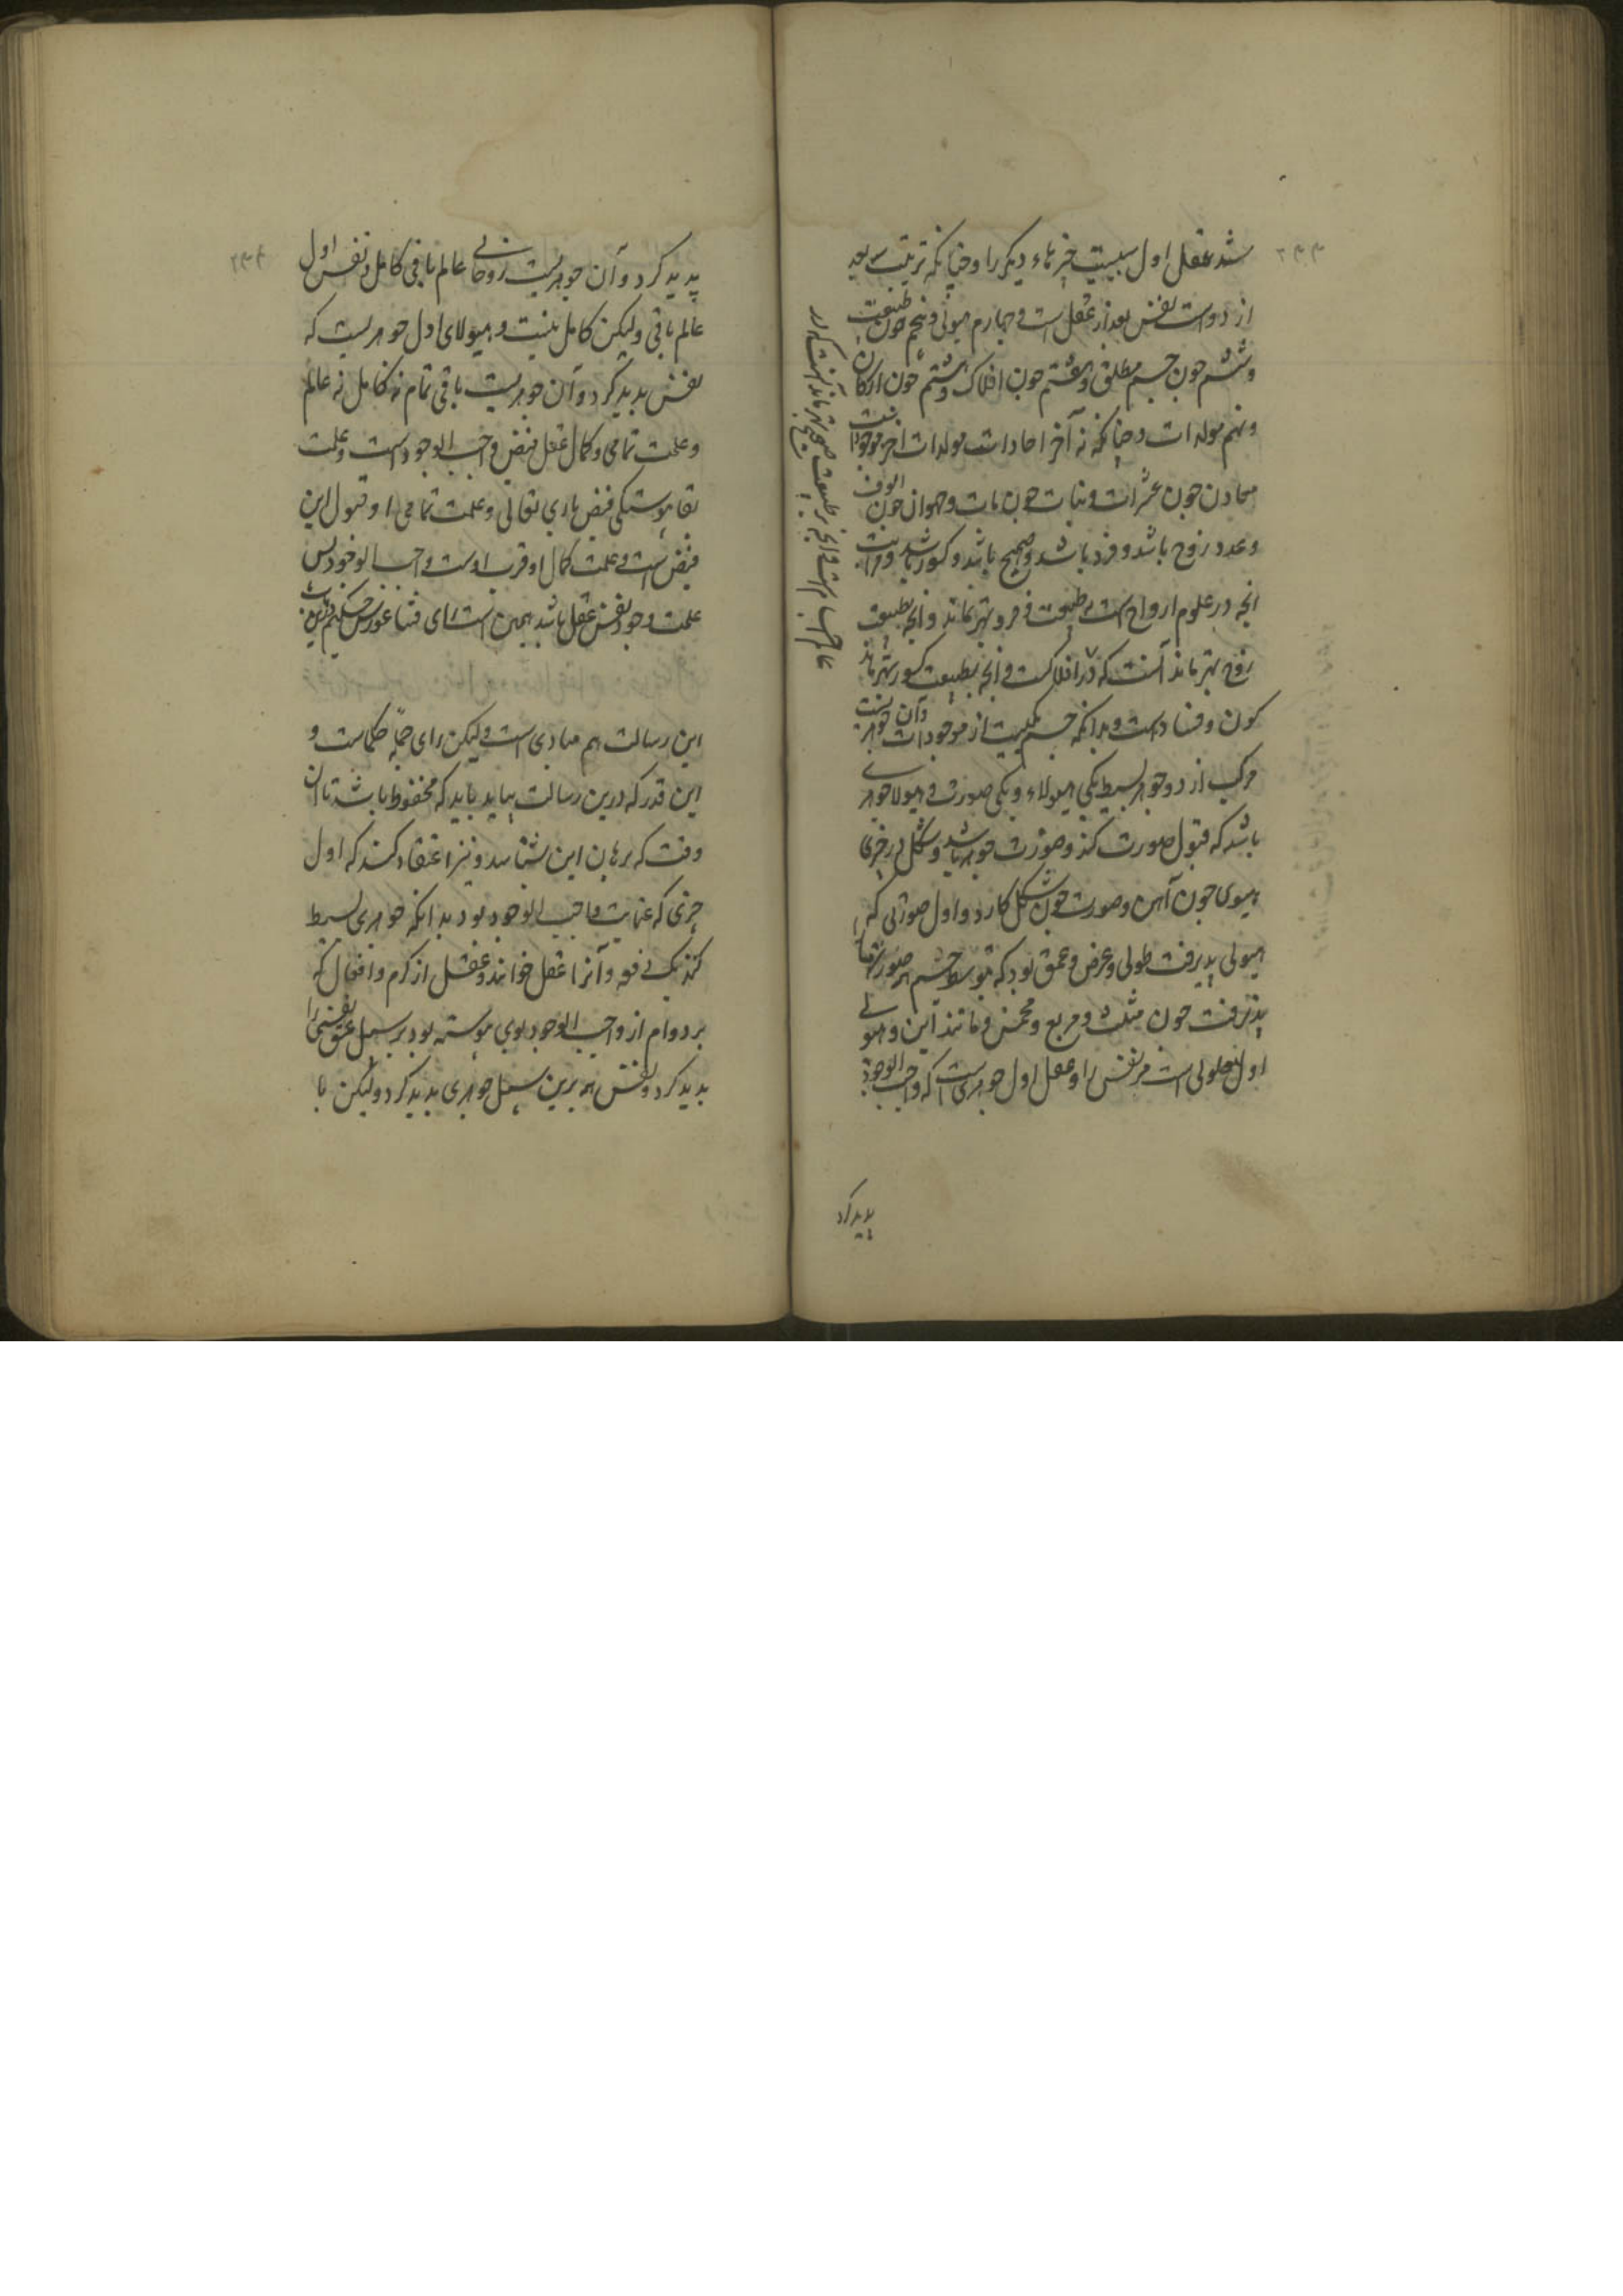 شد عقل اول سبب چیزهاء دیکر را و چنانکه ترتیب سه بعد
از دو است نفس بعد از عقل است و چهارم هیولی و پنجم چون طبیعت
و ششم چون جسم مطلق و هفتم چون افلاک و هشتم چون ارکان
و نهم مولدات و چنانکه نه آخر احاد است مولدات آخر موجودات
معادن چون عشرات و نبات چون مات و حیوان چون الوف
و عدد زوج باشد و فرد باشد و صحیح باشد و کسور باشد
انچه در علوم ارواح است بطبیعت فرد بهتر ماند و انچه بطبیعت
زوج بهتر ماند آنست که در افلاکست و انچه بطبیعت کسور بهتر ماند
کون و فساد است و بدانکه جسم یکیست از موجودات و آن جوهریست
مرکب از دو جوهر بسیط یکی هیولاء و یکی صورت و هیولا جوهری
باشد که قبول صورت کند و صورت جوهر باشد و شکل در چیزی
هیولی چون آهن و صورت چون شکل کارد و اول صورتی که
هیولی پذیرفت طولی و عرض و عمق بود که بتوسط جسم هر صورتها
پذیرفت چون مثلث و مربع و مخمس و مانند این و هیولی
اول معلولی است مر نفس را و عقل اول جوهری است که واجب الوجود
عالم اجسام است و انچه بر طبیعت صحیح بهتر ماند آنست که در
پدید کرد
۲۳۳
پدید کرد و آن جوهریست روحانی عالم باقی کامل و نفس اول
عالم باقی ولیکن کامل نیست و هیولای اول جوهریست که
نفس پدید کرد و آن جوهریست باقی تمام نه کامل نه عالم
و علت تمامی و کمال عقل فیض واجب الوجود است و علت
بقا پیوستکی فیض باری تعالی و علت تمامی او قبول این
فیض است و علت کمال او قرب اوست واجب الوجود پس
علت وجود نفس عقل باشد همین است رای فیثاغورس حکیم درین باب
این رسالت هم مبادی است ولیکن رای جمله حکماست و
این قدر که درین رسالت بیاید باید که محفوظ باشد تا آن
وقت که برهان این بشناسد و نیز اعتقاد کند که اول
چیزی که عنایت واجب الوجود بود بدانکه جوهری بسیط
کند یک و آنرا عقل خوانند و عقل از کرم و افضال که
بر دوام از واجب الوجود بوی پیوسته بود بر سبیل عشق نفسی را
پدید کرد و نفس هم برین سبیل جوهری پدید کرد ولیکن با
۲۳۴